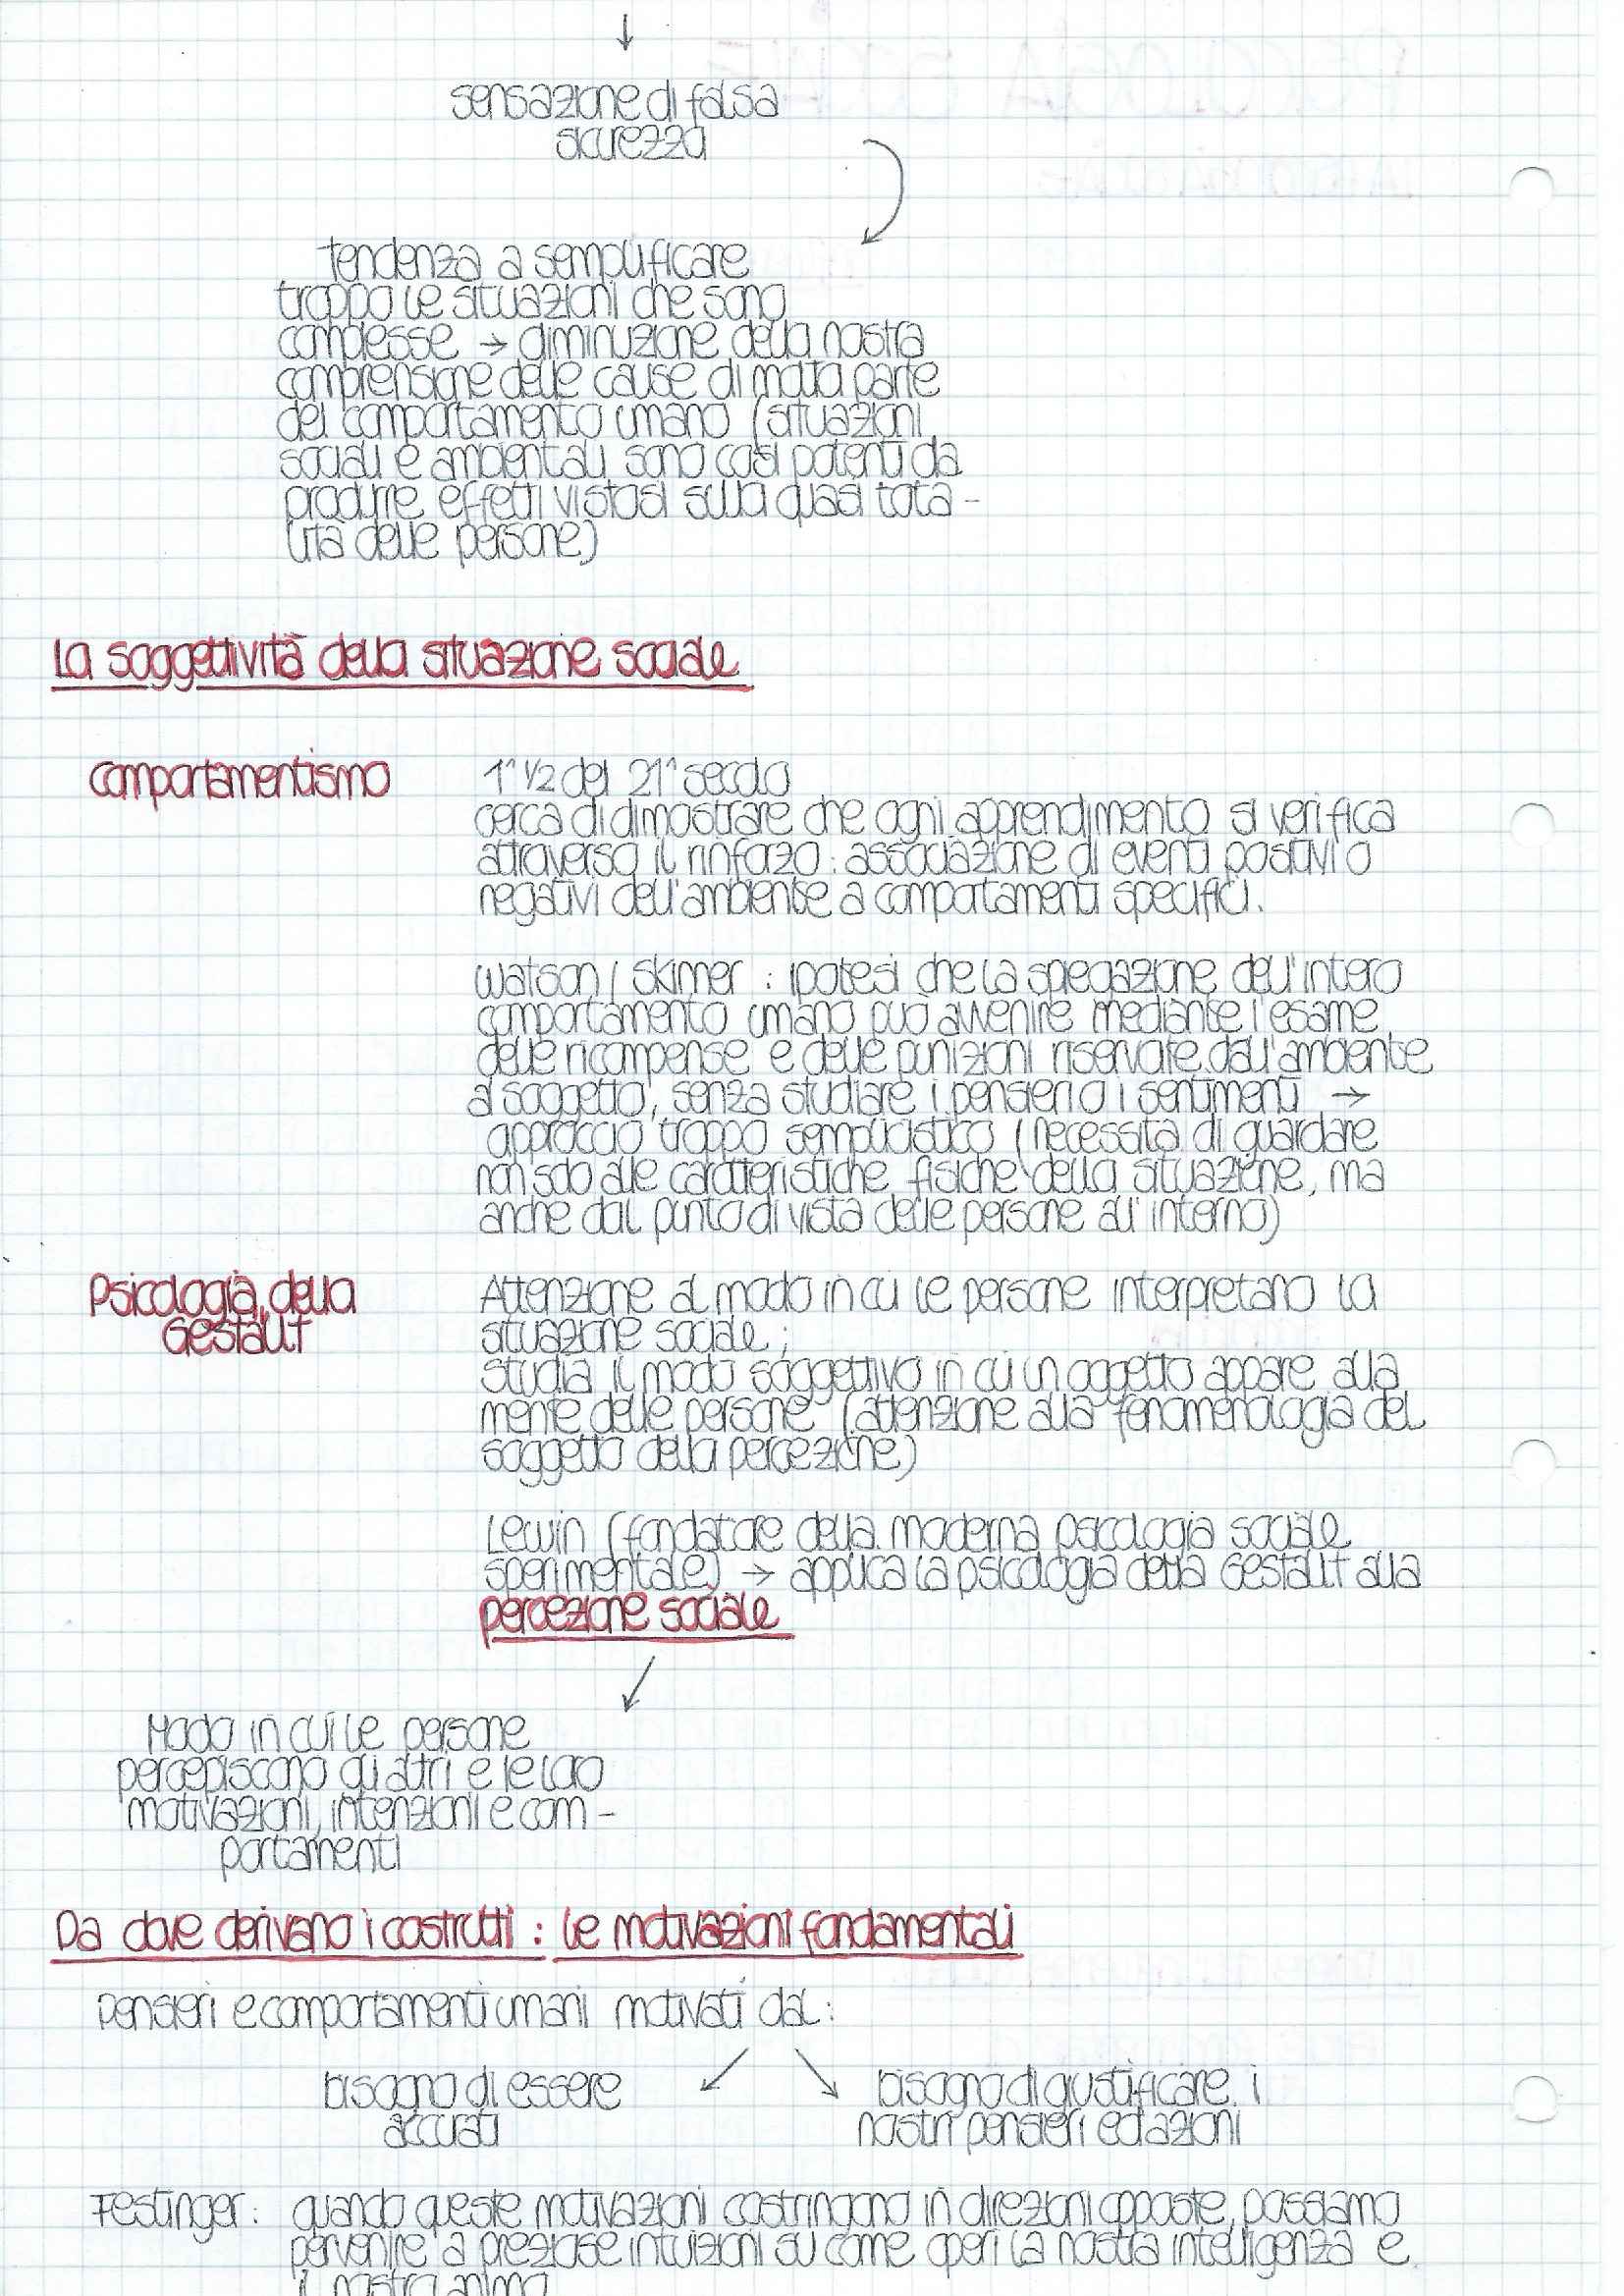 ↓
sensazione di falsa
sicurezza
tendenza a semplificare
troppo le situazioni che sono
complesse → diminuzione della nostra
comprensione delle cause di molta parte
del comportamento umano (situazioni
sociali e ambientali sono così potenti da
produrre effetti vistosi sulla quasi tota-
lità delle persone)
La soggettività della situazione sociale
Comportamentismo
1^ 1/2 del 21^ secolo
cerca di dimostrare che ogni apprendimento si verifica
attraverso il rinforzo: associazione di eventi positivi o
negativi dell'ambiente a comportamenti specifici.
Watson / Skinner : ipotesi che la spiegazione dell'intero
comportamento umano può avvenire mediante l'esame
delle ricompense e delle punizioni riservate dall'ambiente
al soggetto, senza studiare i pensieri o i sentimenti →
approccio troppo semplicistico (necessità di guardare
non solo alle caratteristiche fisiche della situazione, ma
anche dal punto di vista delle persone all'interno)
Psicologia della
Gestalt
Attenzione al modo in cui le persone interpretano la
situazione sociale;
studia il modo soggettivo in cui un oggetto appare alla
mente delle persone (attenzione alla fenomenologia del
soggetto della percezione)
Lewin (fondatore della moderna psicologia sociale
sperimentale) → applica la psicologia della Gestalt alla
percezione sociale
Modo in cui le persone
percepiscono gli altri e le loro
motivazioni, intenzioni e com-
portamenti
Da dove derivano i costrutti : le motivazioni fondamentali
Pensieri e comportamenti umani motivati dal:
bisogno di essere
accurati
bisogno di giustificare i
nostri pensieri ed azioni
Festinger: quando queste motivazioni costringono in direzioni opposte, possiamo
pervenire a preziose intuizioni su come operi la nostra intelligenza e
il nostro animo